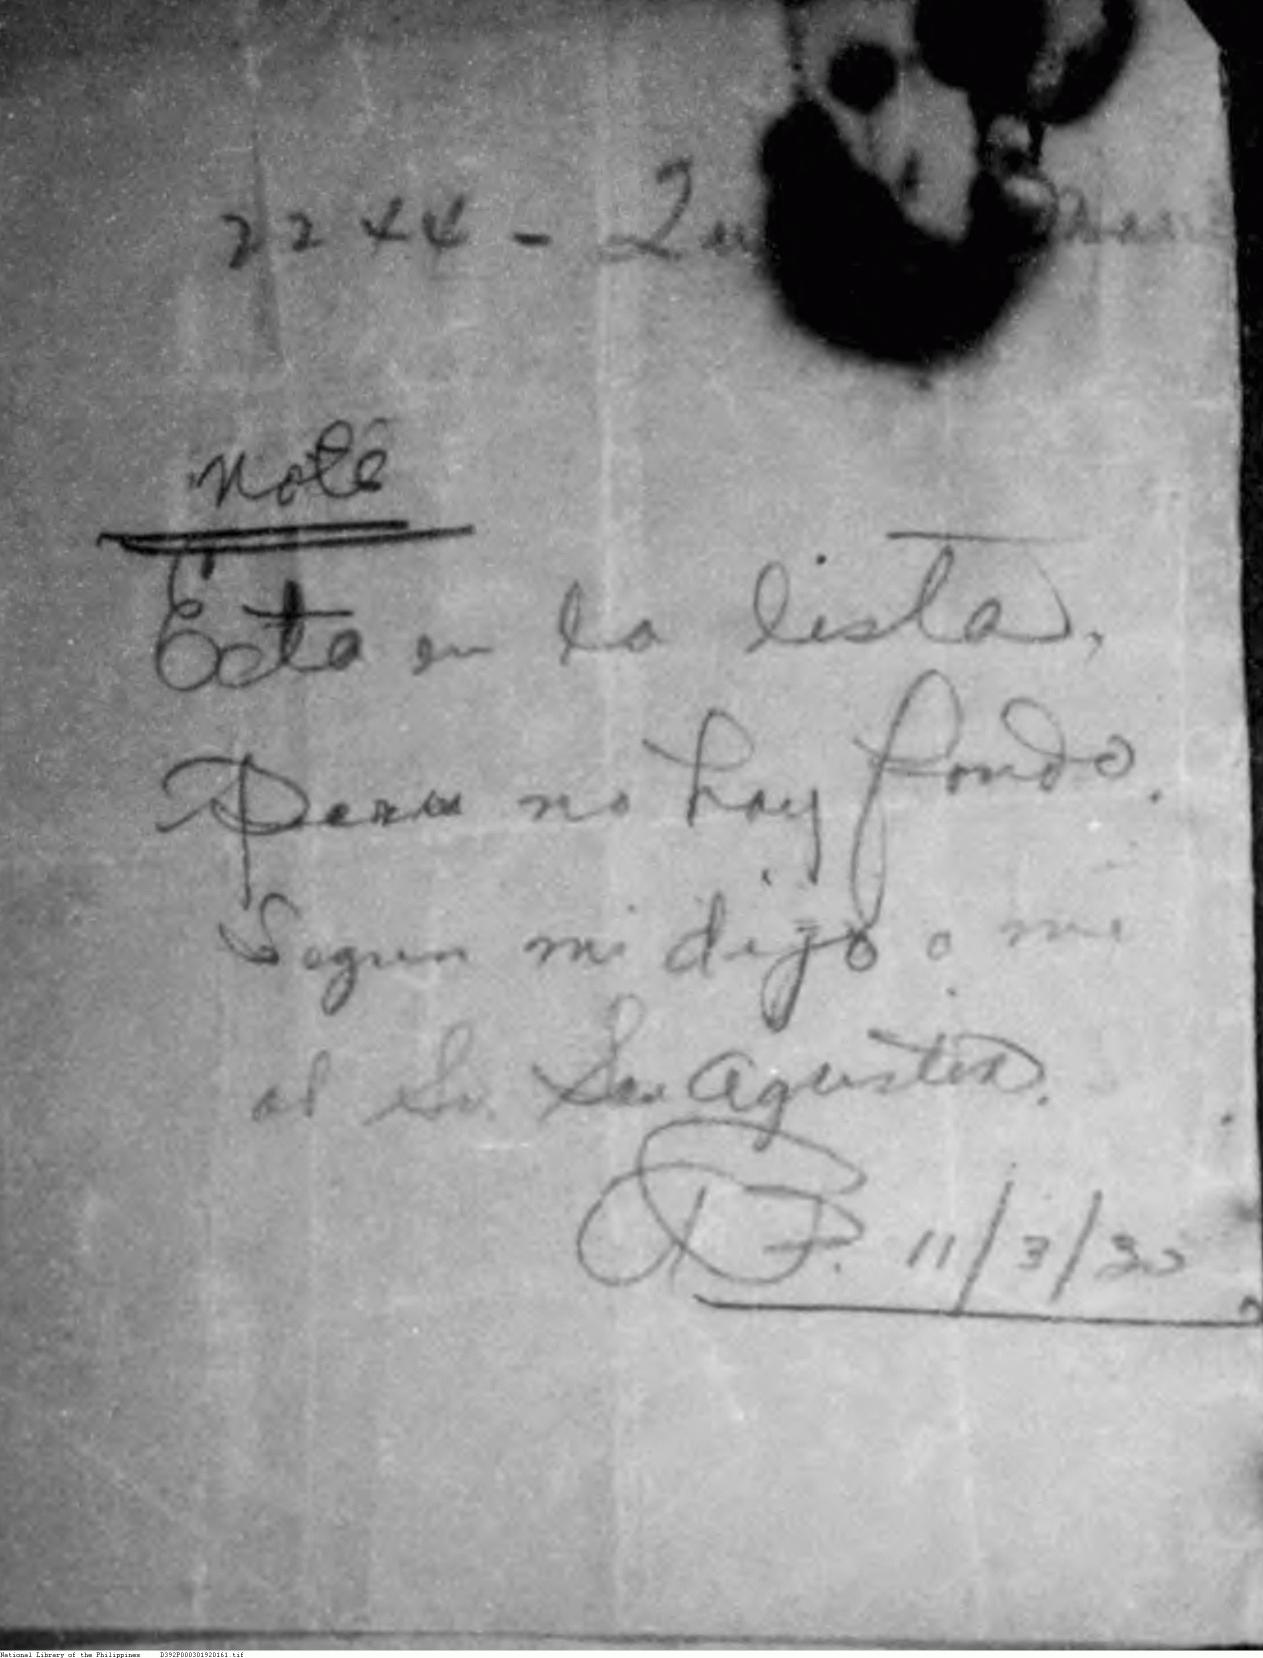 2244 -
Note
Esta en la lista,
Pero no hay fondo.
Segun mi dijo a mi
el Sr. San Agustin.
11/3/30
National Library of the Philippines D392P000301920161.tif